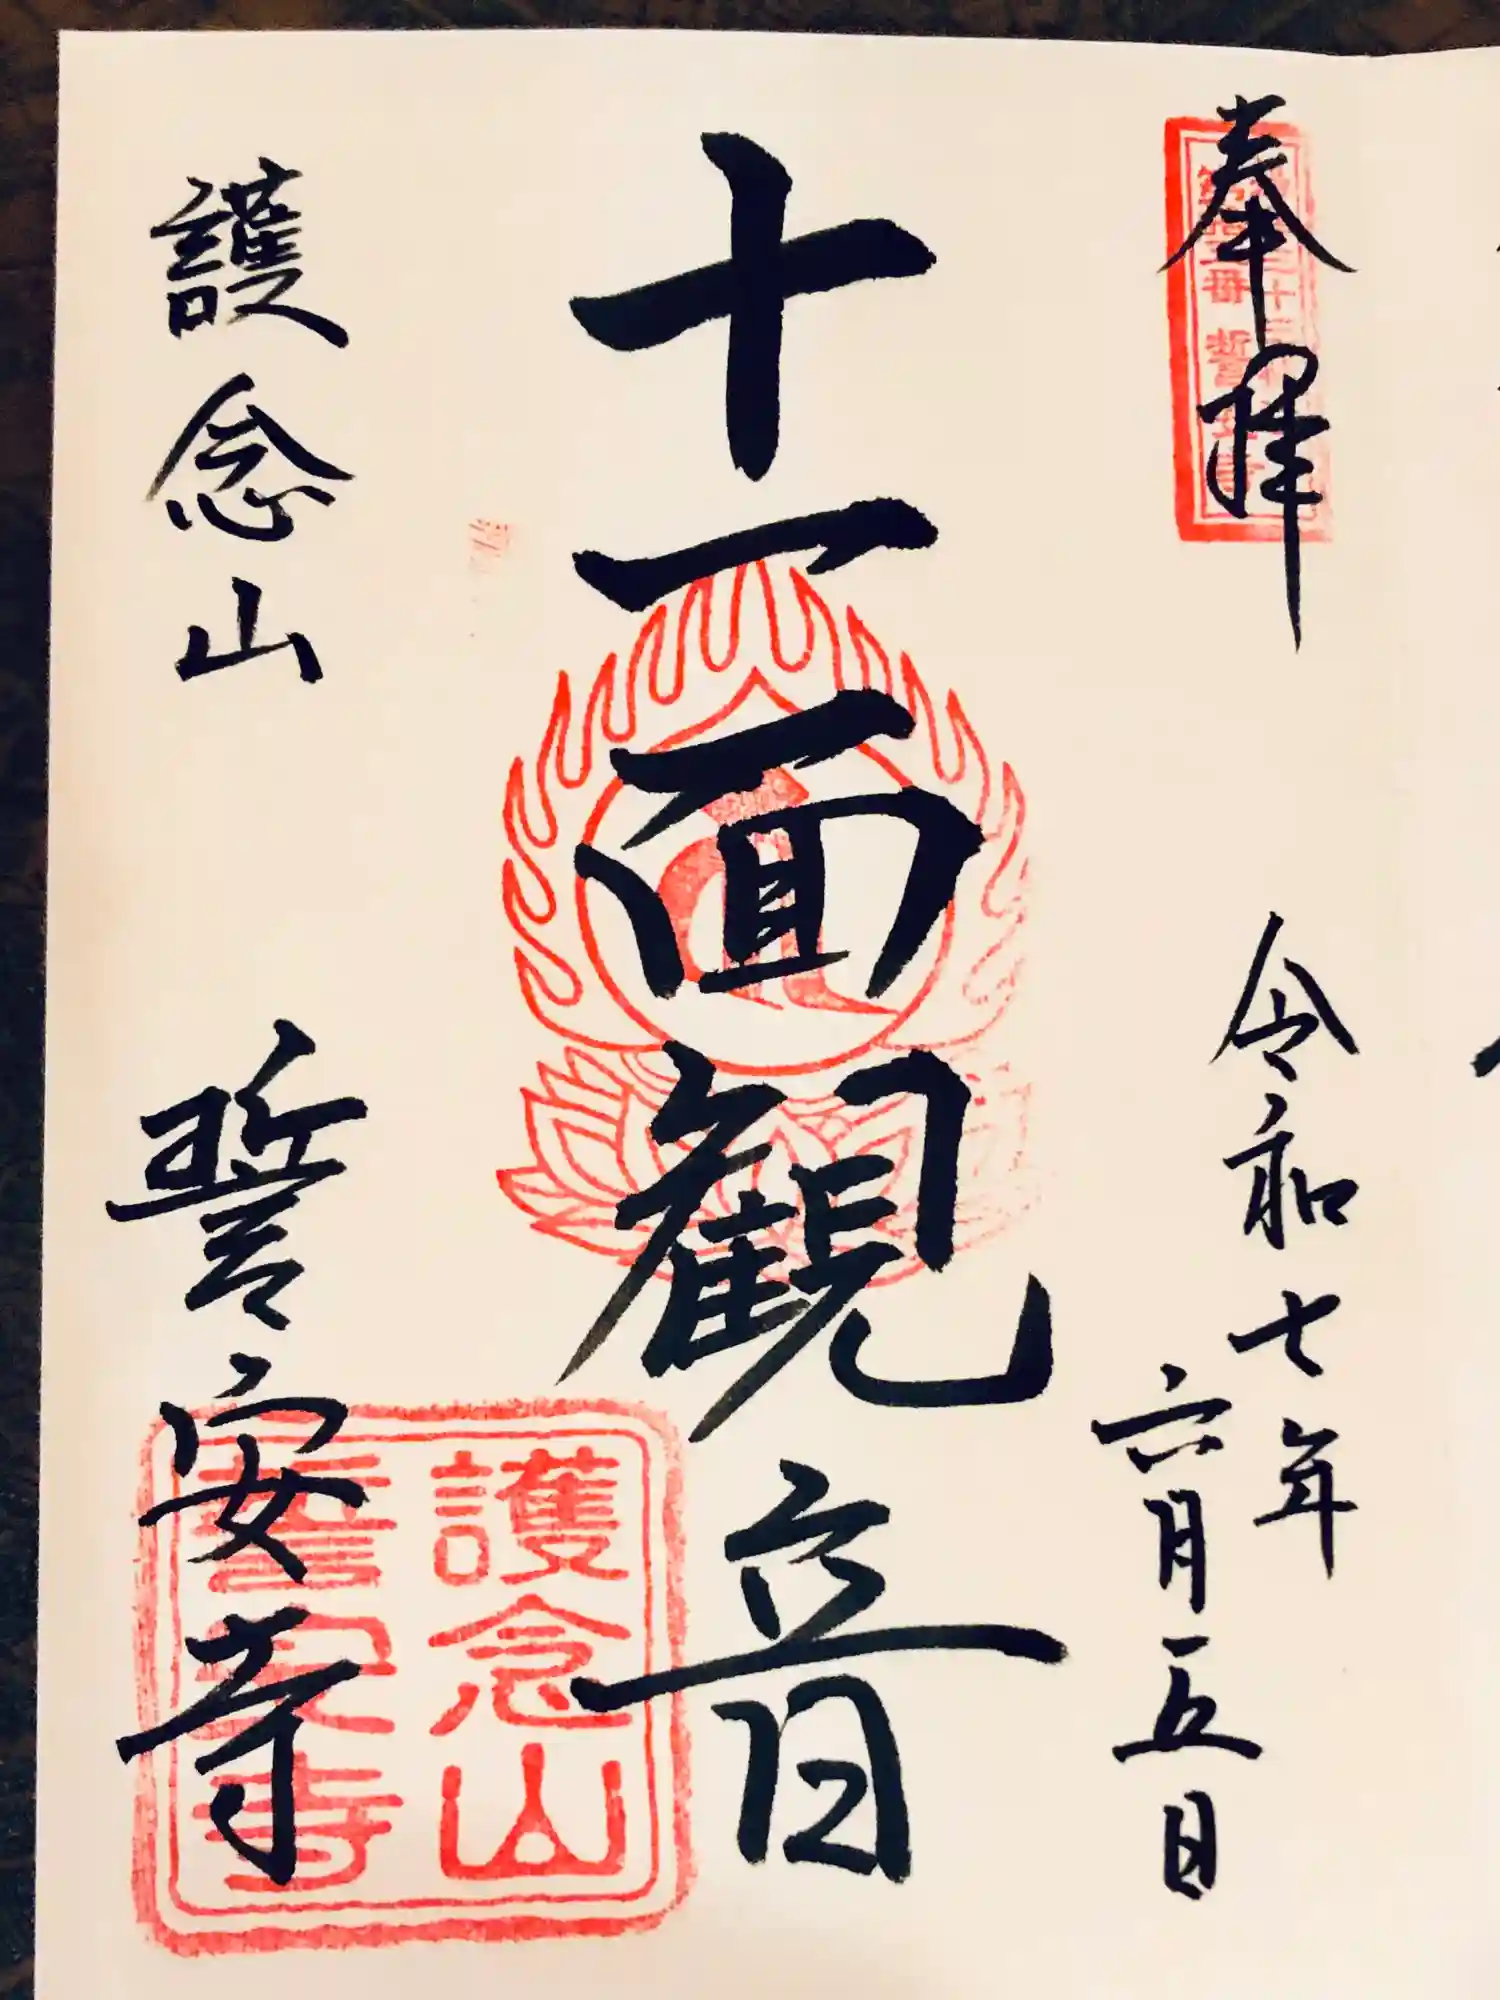 奉拝
令和七年
六月五日
十一面観音
護念山
誓安寺
護念山
誓安寺